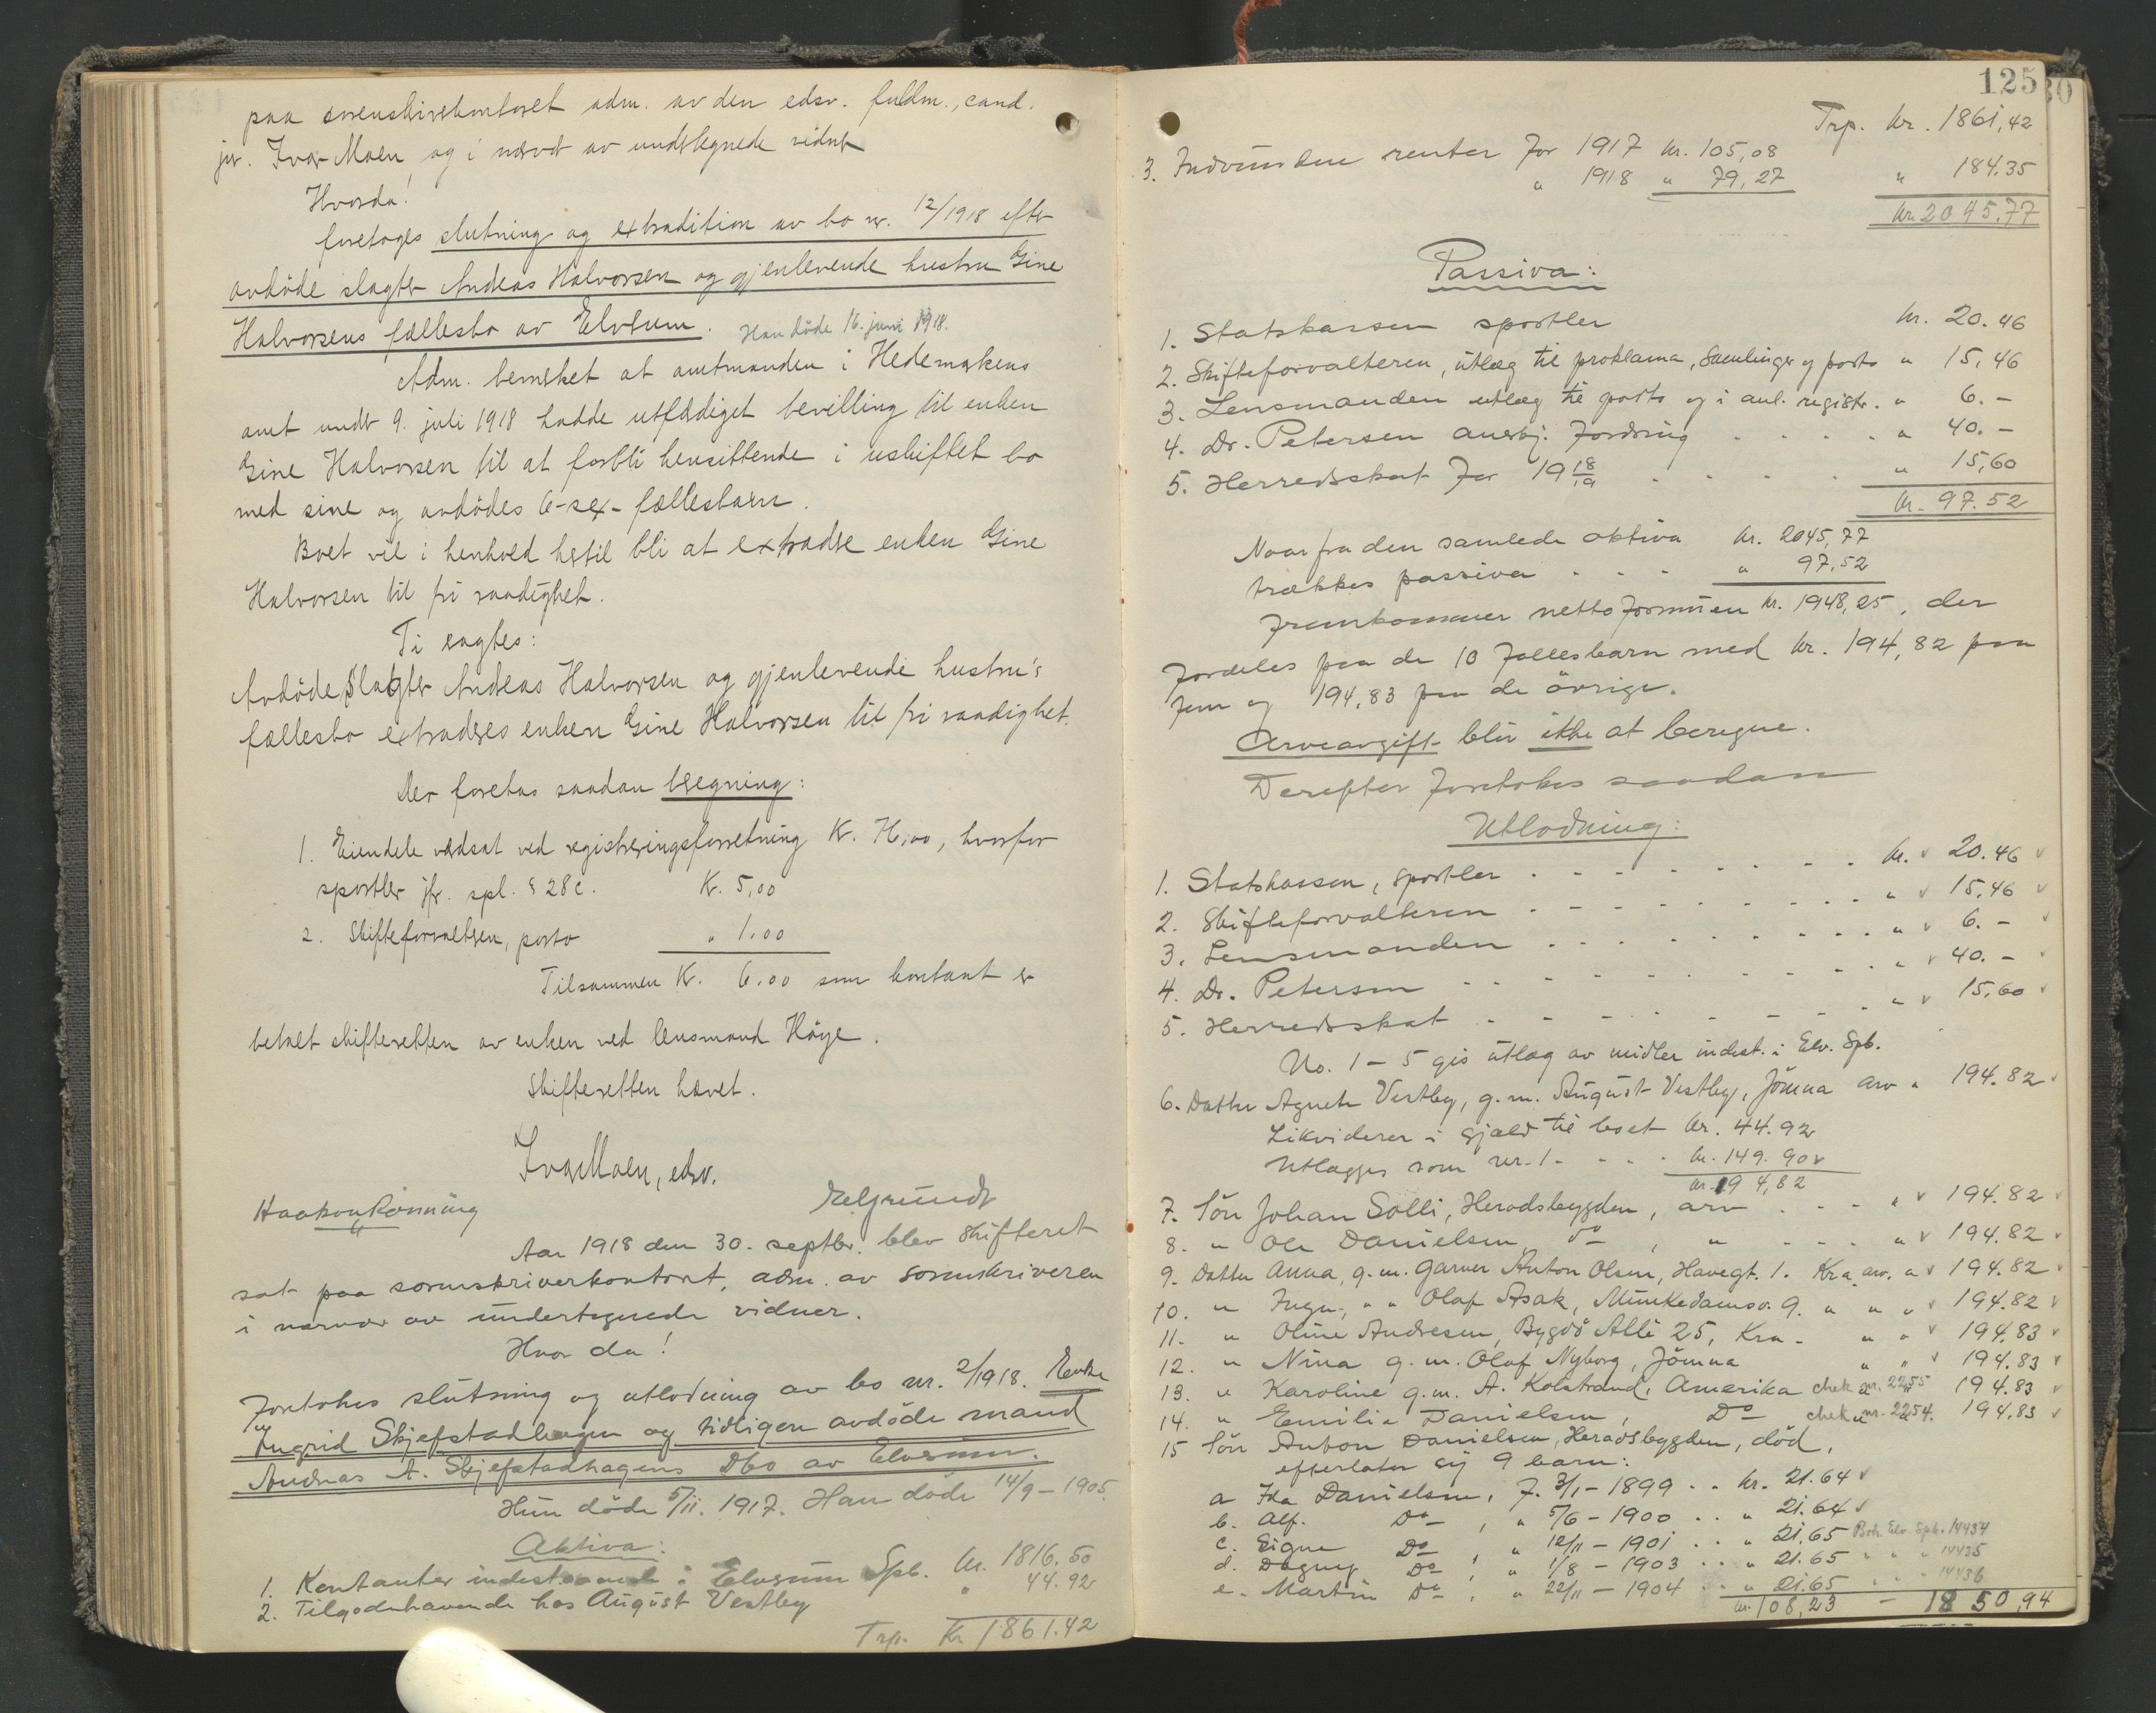 paa sorenskriverkontoret adm. av den edsv. fuldm., cand.
jur. Ivar Moen, og i nærvær av undertegnede vidner
Hvorda!
foretoges slutning og extradition av bo nr. 12/1918 efter
avdöde slagter Andreas Halvorsen og gjenlevende hustru Gine
Halvorsens fællesbo av Elverum. Han döde 16. juni 1918.
Adm. bemerket at amtmanden i Hedemarkens
amt under 9. juli 1918 hadde utfærdiget bevilling til enken
Gine Halvorsen til at forbli hensittende i uskiftet bo
med sine og avdödes 6-sex-fællesbarn.
Boet vil i henhold hertil bli at extradere enken Gine
Halvorsen til fri raadighet.
Ti sagtes:
Avdöde, Slagter Andreas Halvorsen og gjenlevende hustru's
fællesbo extraderes enken Gine Halvorsen til fri raadighet.
Der foretas saadan beregning:
1. Eiendele værdsat ved registreringsforretning Kr. 76,00, hvorfor
sportler jfr. spl. § 28 c. Kr. 5,00
2. Skifteforvalteren, porto " 1.00
Tilsammen Kr. 6.00 som kontant er
betalt skifteretten av enken ved lensmand Höye.
Skifteretten hævet.
Ivar Moen, edsv.
Haakon Rönning Relgrundt
Aar 1918 den 30. septbr. blev skifteret
sat paa sorenskriverkontoret, adm. av sorenskriveren
i nærvær av undertegnede vidner.
Hvor da!
Foretokes slutning og utlodning av bo nr. 2/1918. Enke
Ingrid Skjefstadhagen og tidligere avdöde mand
Andreas A. Skjefstadhagens Dbo av Elverum.
Hun döde 5/11. 1917. Han döde 14/9 - 1905.
Aktiva:
1. Kontanter indestaaende i Elverum Spb. kr. 1816.50
2. Tilgodehavende hos August Vestby " 44.92
Trp. Kr 1861.42
125
30
Trp. kr. 1861,42
3. Indvundne renter for 1917 kr. 105,08
" 1918 " 79,27 " 184.35
kr. 2045,77
Passiva:
1. Statskassen sportler kr. 20.46
2. Skifteforvalteren, utlæg til proklama, Samlinger og porto " 15,46
3. Lensmanden utlæg til porto og i anl. registr. " 6.-
4. Dr. Petersen anerkj. Fordring . . . . . " 40.-
5. Herredsskat for 19 18/19 . . . . " 15,60
kr. 97.52
Naar fra den samlede aktiva kr. 2045,77
trækkes passiva . . . " 97,52
fremkommer nettoformuen kr. 1948,25, der
fordeles paa de 10 fællesbarn med kr. 194,82 paa
fem og 194,83 paa de övrige.
Arveavgift blir ikke at beregne.
Derefter foretokes saadan
Utlodning:
1. Statskassen, sportler . . . . . kr. 20.46
2. Skifteforvalteren . . . . . " 15,46
3. Lensmanden . . . . . " 6.-
4. Dr. Petersen . . . . . " 40.-
5. Herredsskat . . . . . " 15,60
No. 1 - 5 gis utlæg av midler indest. i Elv. Spb.
6. Datter Agnete Vestby, g. m. August Vestby, Jömna arv " 194.82
Likviderer i gjæld til boet kr. 44.92
Utlægges som nr. 1 - . . . kr. 149.90
kr. 194,82
7. Sön Johan Solli, Heradsbygden, arv . . . " 194.82
8. " Ole Danielsen do , " . . . " 194.82
9. Datter Anna, g. m. Garver Anton Olsen, Havegt. 1. Kra. arv. " 194.82
10. " Inga, " " Olaf Asak, Munkedamsv. 9. " " " 194.82
11. " Oline Andresen, Bygdö Allé 25, Kra. " " 194.83
12. " Nina g. m. Olaf Nyborg, Jömna " " 194.83
13. " Karoline g. m. A. Kolstrand, Amerika chek nr. 2255 194.83
14. " Emilie Danielsen, Do chek nr. 2254. 194.83
15 Sön Anton Danielsen, Heradsbygden, död,
efterlater sig 9 barn:
a Ida Danielsen, f. 3/1 - 1899 . . kr. 21.64
b. Alf. Do , " 5/6 - 1900 . . " 21.64
c. Signe Do , " 12/11 - 1901 . . " 21.65 Bok. Elv. Spb. 14434
d. Dagny Do , " 1/8 - 1903 . . " 21.65 " " " 14435
e. Martin Do , " 22/11 - 1904 . . " 21.65 " " " 14436
kr. 108,23 - 1850,94